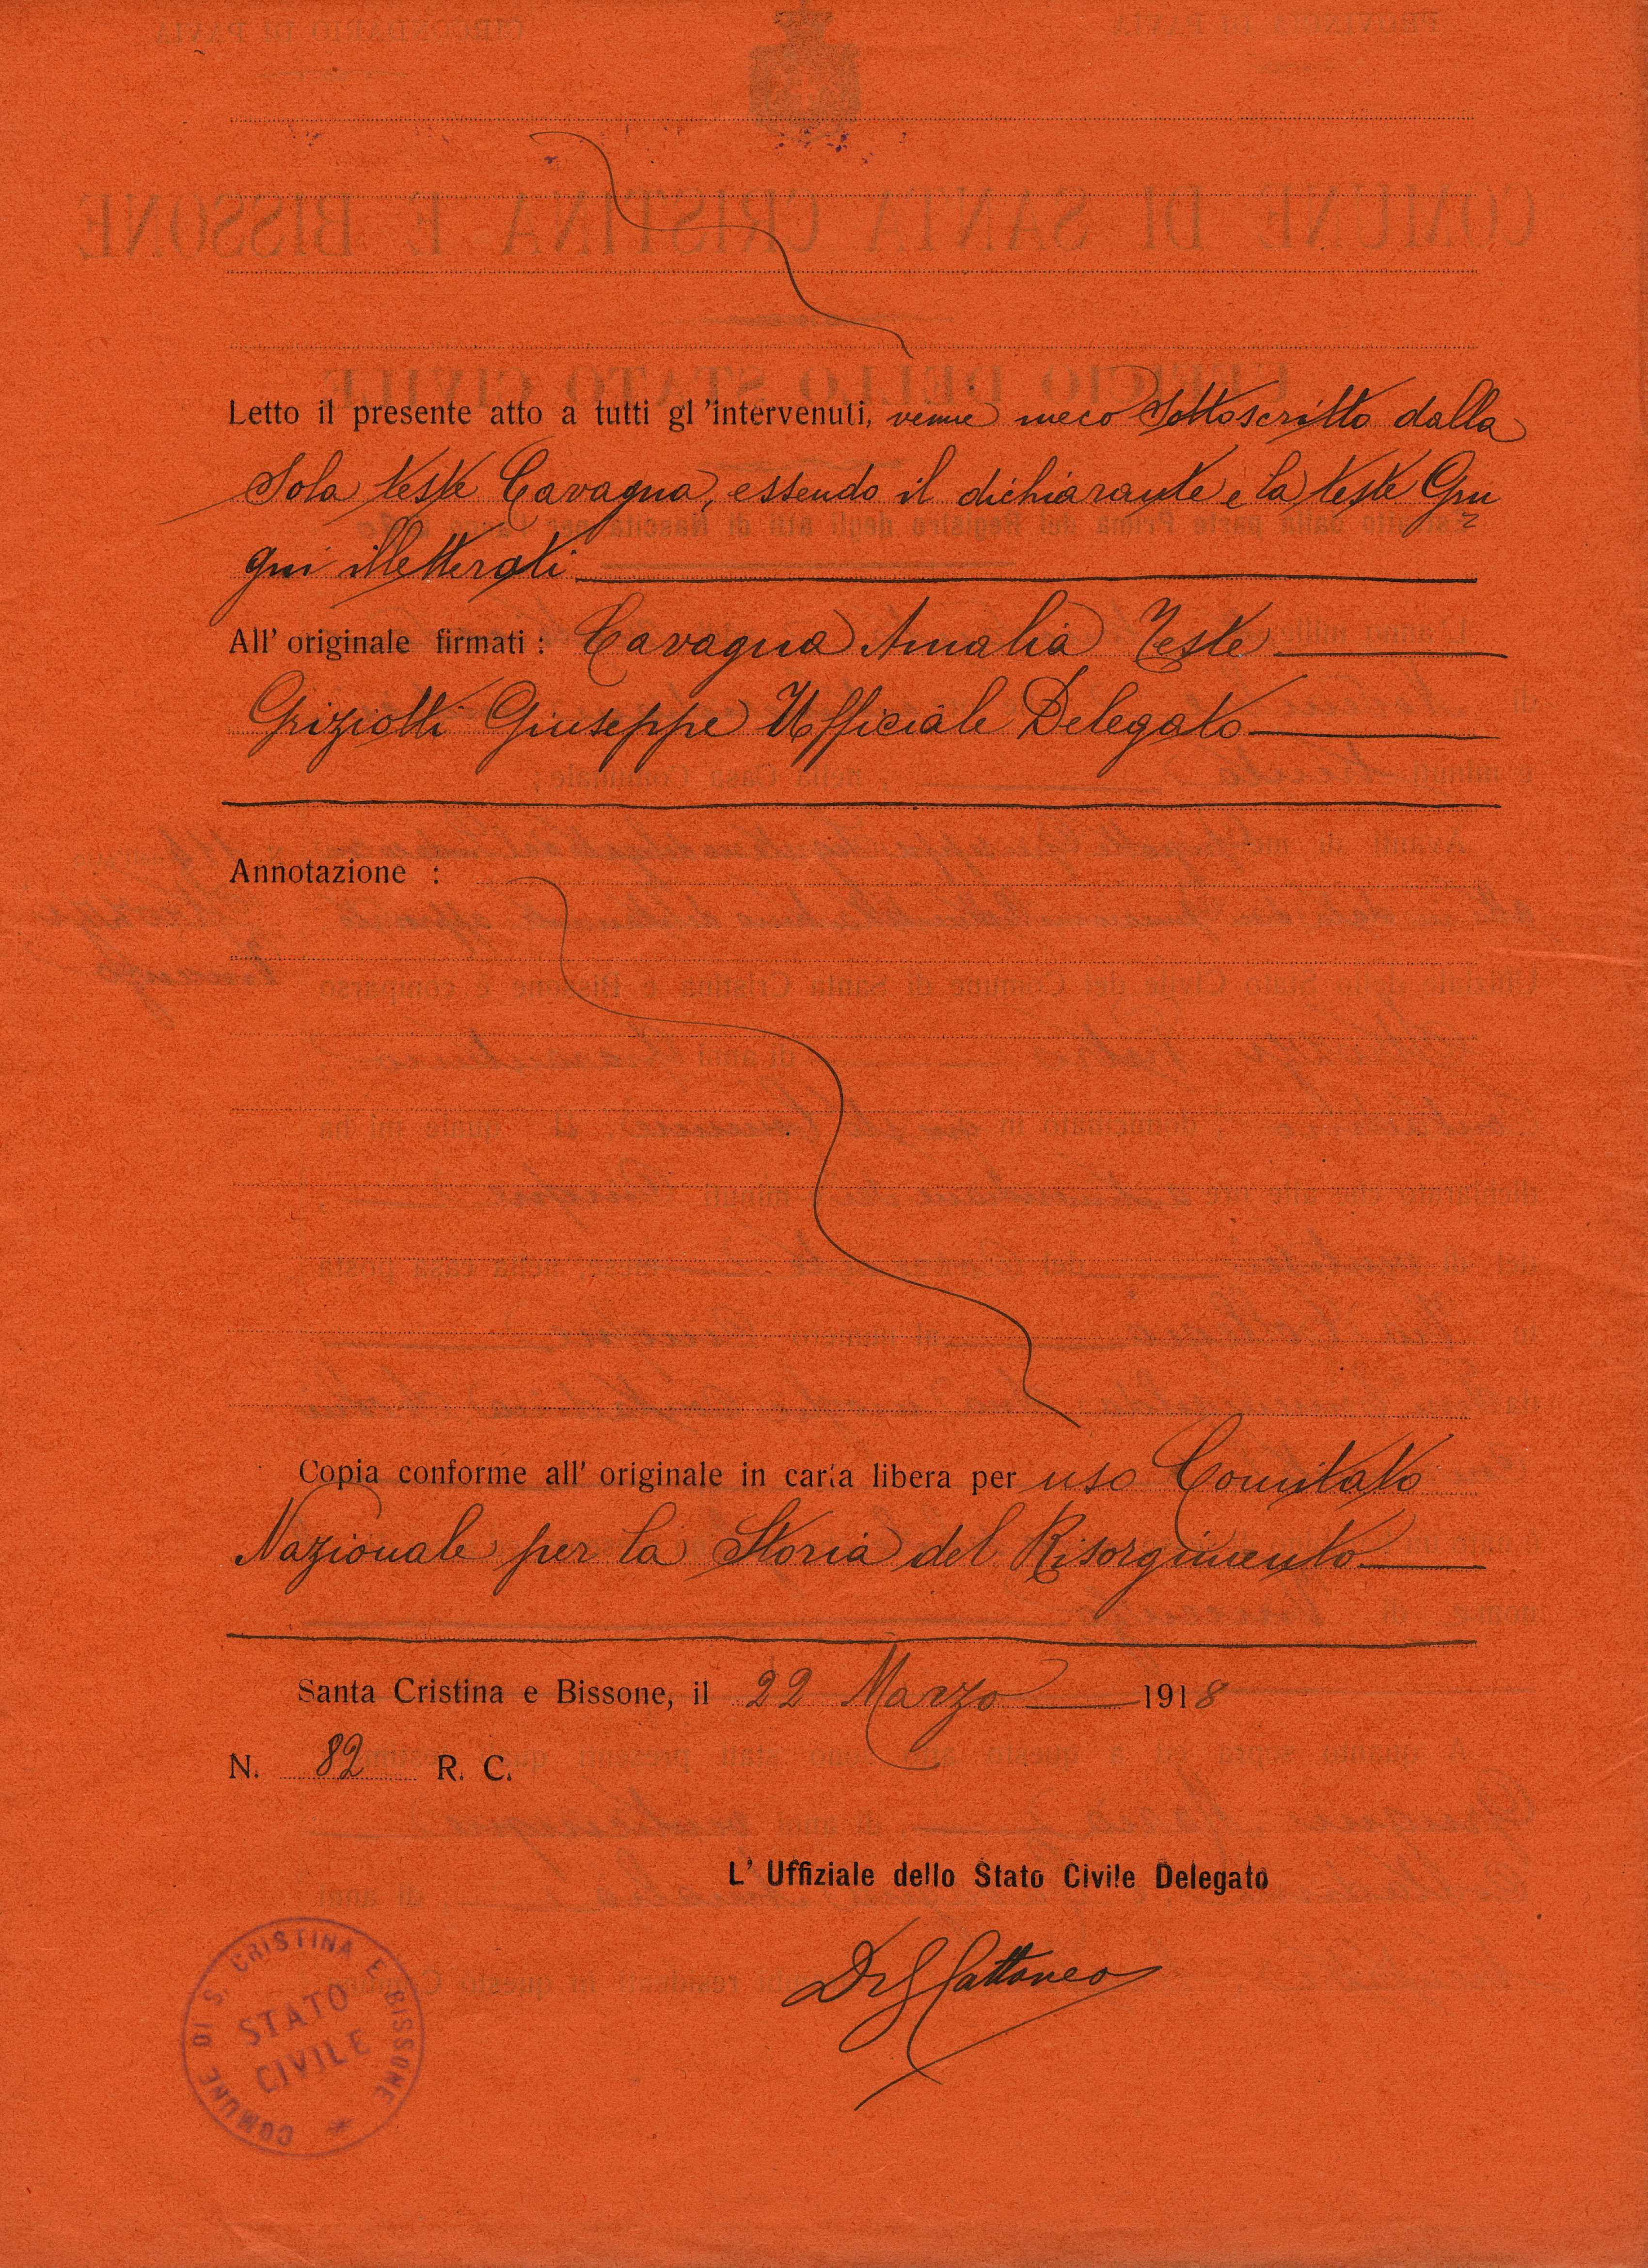 Letto il presente atto a tutti gl'intervenuti, venne meco sottoscritto dalla
sola teste Cavagna, essendo il dichiarante e la teste Gru
gni illetterati
All' originale firmati : Cavagna Amalia Teste
Griziotti Giuseppe Ufficiale Delegato
Annotazione :
Copia conforme all' originale in carta libera per uso Comitato
Nazionale per la Storia del Risorgimento
Santa Cristina e Bissone, il 22 Marzo 1918
N. 82 R. C.
L' Uffiziale dello Stato Civile Delegato
Cattaneo
COMUNE DI S. CRISTINA E BISSONE
STATO
CIVILE